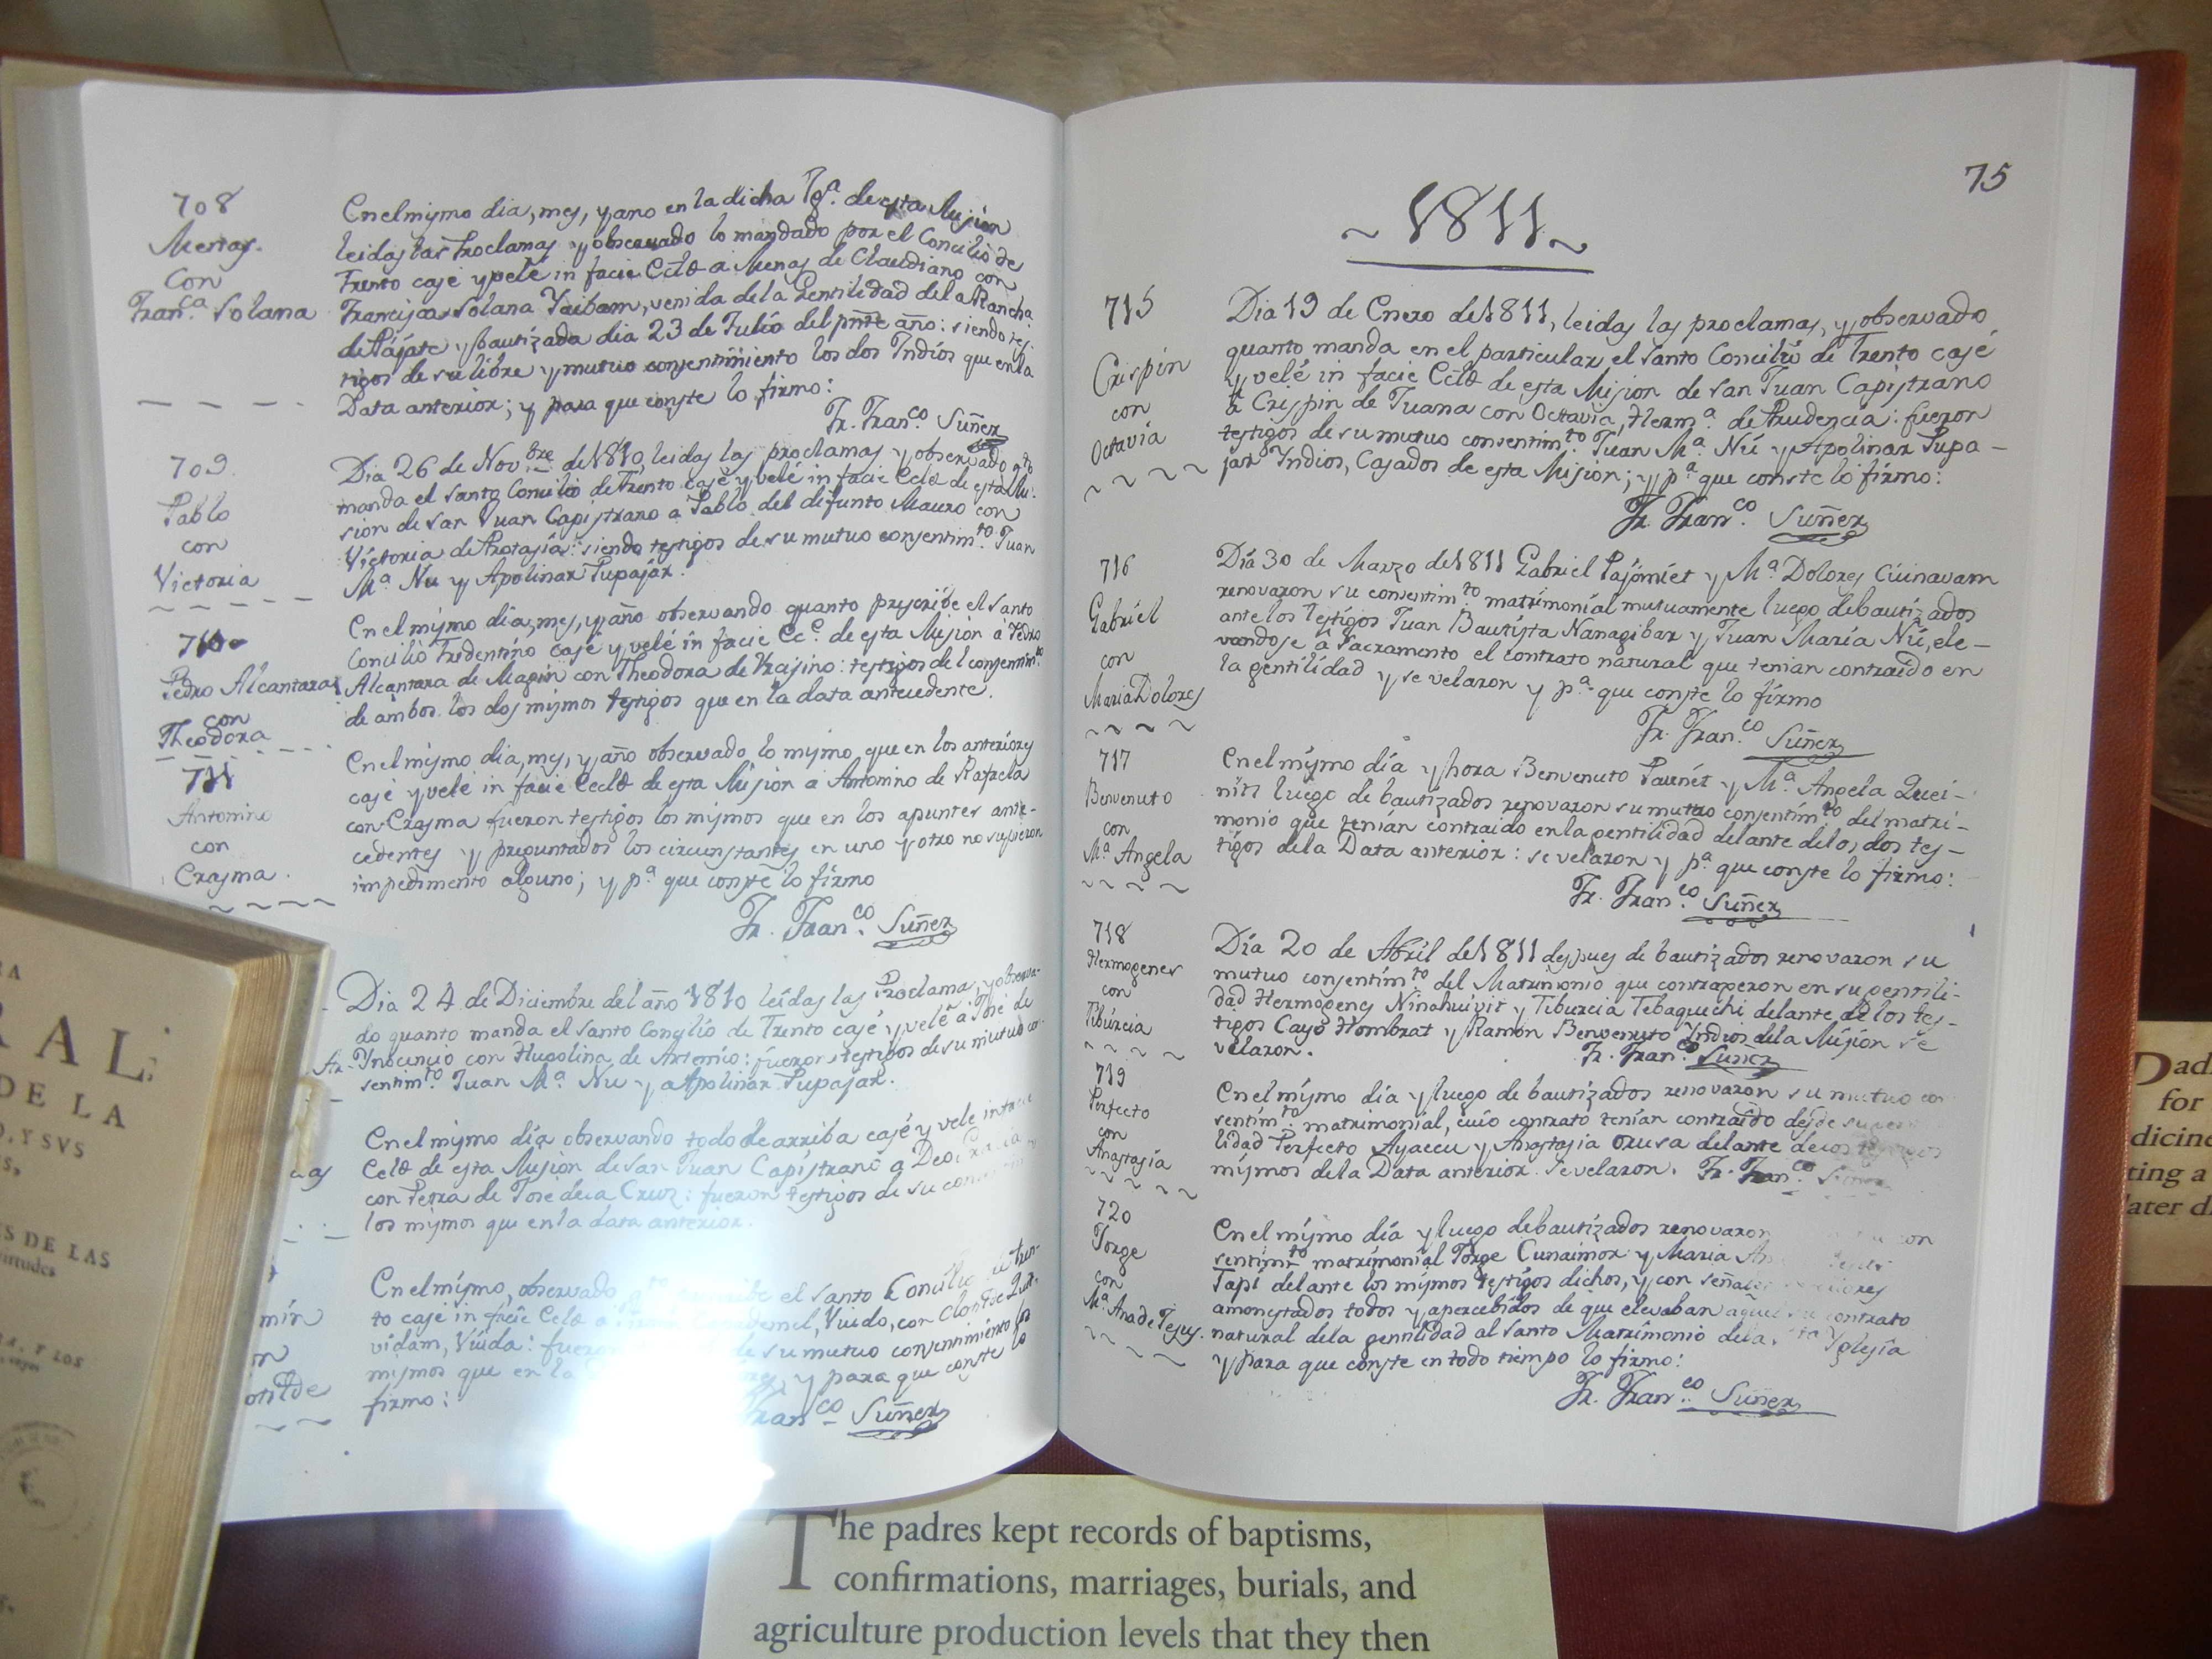 708
Menas.
Con
Fran.ca Solana
En el mismo dia, mes, y año en la dicha Yg.a de esta Mision
leidas las Proclamas y observado lo mandado por el Concilio de
Trento casé y velé in facie Ecclæ a Menas de Claudiano con
Francisca Solana Yaibam, venida de la Gentilidad de la Ranch.a
de Pájate y bautizada dia 23 de Julio del pnte año: siendo tes-
tigos de su libre y mutuo consentimiento los dos Indios que en la
Data anterior; y para que conste lo firmo:
Fr. Fran.co Suñer
709
Pablo
con
Victoria
Dia 26 de Nov.bre de 1810, leidas las proclamas y observado q.to
manda el Santo Concilio de Trento casé y velé in facie Ecclæ de esta Mi-
sion de San Juan Capistrano a Pablo del difunto Mauro con
Victoria de Protasia: siendo testigos de su mutuo consentim.to Juan
M.a Nu y Apolinar Pupajar.
710
Pedro Alcantara
con
Theodora
En el mismo dia, mes, y año observando quanto prescribe el Santo
Concilio Tridentino casé y velé in facie Ec.e de esta Mision à Pedro
Alcantara de Magin con Theodora de Krajino: testigos del consentim.to
de ambos los dos mismos testigos que en la data antecedente.
711
Antonino
con
Erasma.
En el mismo dia, mes, y año observado lo mismo, que en los anteriores
casé y velé in facie Eccleæ de esta Mision a Antonino de Rafaela
con Erasma fueron testigos los mismos que en los apuntes ante-
cedentes y preguntados los circunstantes en uno y otro no supieron
impedimento alguno; y p.a que conste lo firmo
Fr. Fran.co Suñer
Dia 24 de Diciembre del año 1810 leídas las Proclamas, y observa-
do quanto manda el Santo Concilio de Trento casé y velé a José de
Ynocencio con Hugolina de Artemio: fueron testigos de su mutuo co-
sentim.to Juan M.a Nu y a Apolinar Pupajar.
En el mismo día observando todo de arriba casé y vele in facie
Ecclæ de esta Mision de San Juan Capistrano a
con Petra de José de la Cruz: fueron testigos de su
los mismos que en la data anterior.
mín
otilde
En el mismo, observado el Santo Concilio de Tren-
to casé in facie Ecclæ a Viudo, con Clotilde
vidam, Viuda: fueron de su mutuo consentimiento los
mismos que en la y para que conste lo
firmo:
Fran.co Suñer
75
~1811~
715
Crispin
con
Octavia
Dia 19 de Enero de 1811, leidas las proclamas, y observado
quanto manda en el particular el Santo Concilio de Trento casé
y velé in facie Ecclæ de esta Mision de San Juan Capistrano
à Crispin de Juana con Octavia, Herm.a de Prudencia: fueron
testigos de su mutuo consentim.to Juan M.a Nú y Apolinar Pupa-
jar Indios, Casados de esta Mision; y p.a que conste lo firmo:
Fr. Fran.co Suñer
716
Gabriel
con
Maria Dolores
Día 30 de Marzo de 1811 Gabriel Pajómiet y M.a Dolores Cuinavam
renovaron su consentim.to matrimonial mutuamente luego de bautizados
ante los Testigos Juan Bautista Nanagibar y Juan María Nú, ele-
vandose à Sacramento el contrato natural que tenian contraido en
la gentilidad y se velaron y p.a que conste lo firmo
Fr. Fran.co Suñer
717
Benvenuto
con
M.a Angela
En el mismo día y hora Benvenuto Paunét y M.a Angela Quei-
nits luego de bautizados renovaron su mutuo consentim.to del matri-
monio que tenían contraido en la gentilidad delante de los dos tes-
tigos de la Data anterior: se velaron y p.a que conste lo firmo:
Fr. Fran.co Suñer
718
Hermogenes
con
Tibúrcia
Día 20 de Abril de 1811 despues de bautizados renovaron su
mutuo consentim.to del Matrimonio que contraxeron en su gentili-
dad Hermogenes Ninahuivit y Tiburcia Tebaguechi delante de los tes-
tigos Cayo Hombrat y Ramón Benvenuto Indios de la Misión se
velaron.
Fr. Fran.co Suñer
719
Perfecto
con
Anastasía
En el mismo dia y luego de bautizados renovarón su mutuo con
sentim.to matrimonial, cuio contrato tenían contraido desde su
lidad Perfecto Ayaceu y Anastasia Orusa delante de los testigos
mismos de la Data anterior. Se velaron. Fr. Fran.co Suñer
720
Jorge
con
M.a Ana de Jesus.
En el mismo día y luego de bautizados renovaron con
sentim.to matrimonial Jorge Cunaimor y Maria
Tapi delante los mismos testigos dichos, y con señales
amonestados todos y apercebidos de que elevaban contrato
natural de la gentilidad al Santo Matrimonio de la Yglesía
y para que conste en todo tiempo lo firmo:
Fr. Fran.co Suñer
RAL
DE LA
Y SVS
S DE LAS
virtudes
Y LOS
The padres kept records of baptisms,
confirmations, marriages, burials, and
agriculture production levels that they then
Pad
for
dicine
ting a
ater d